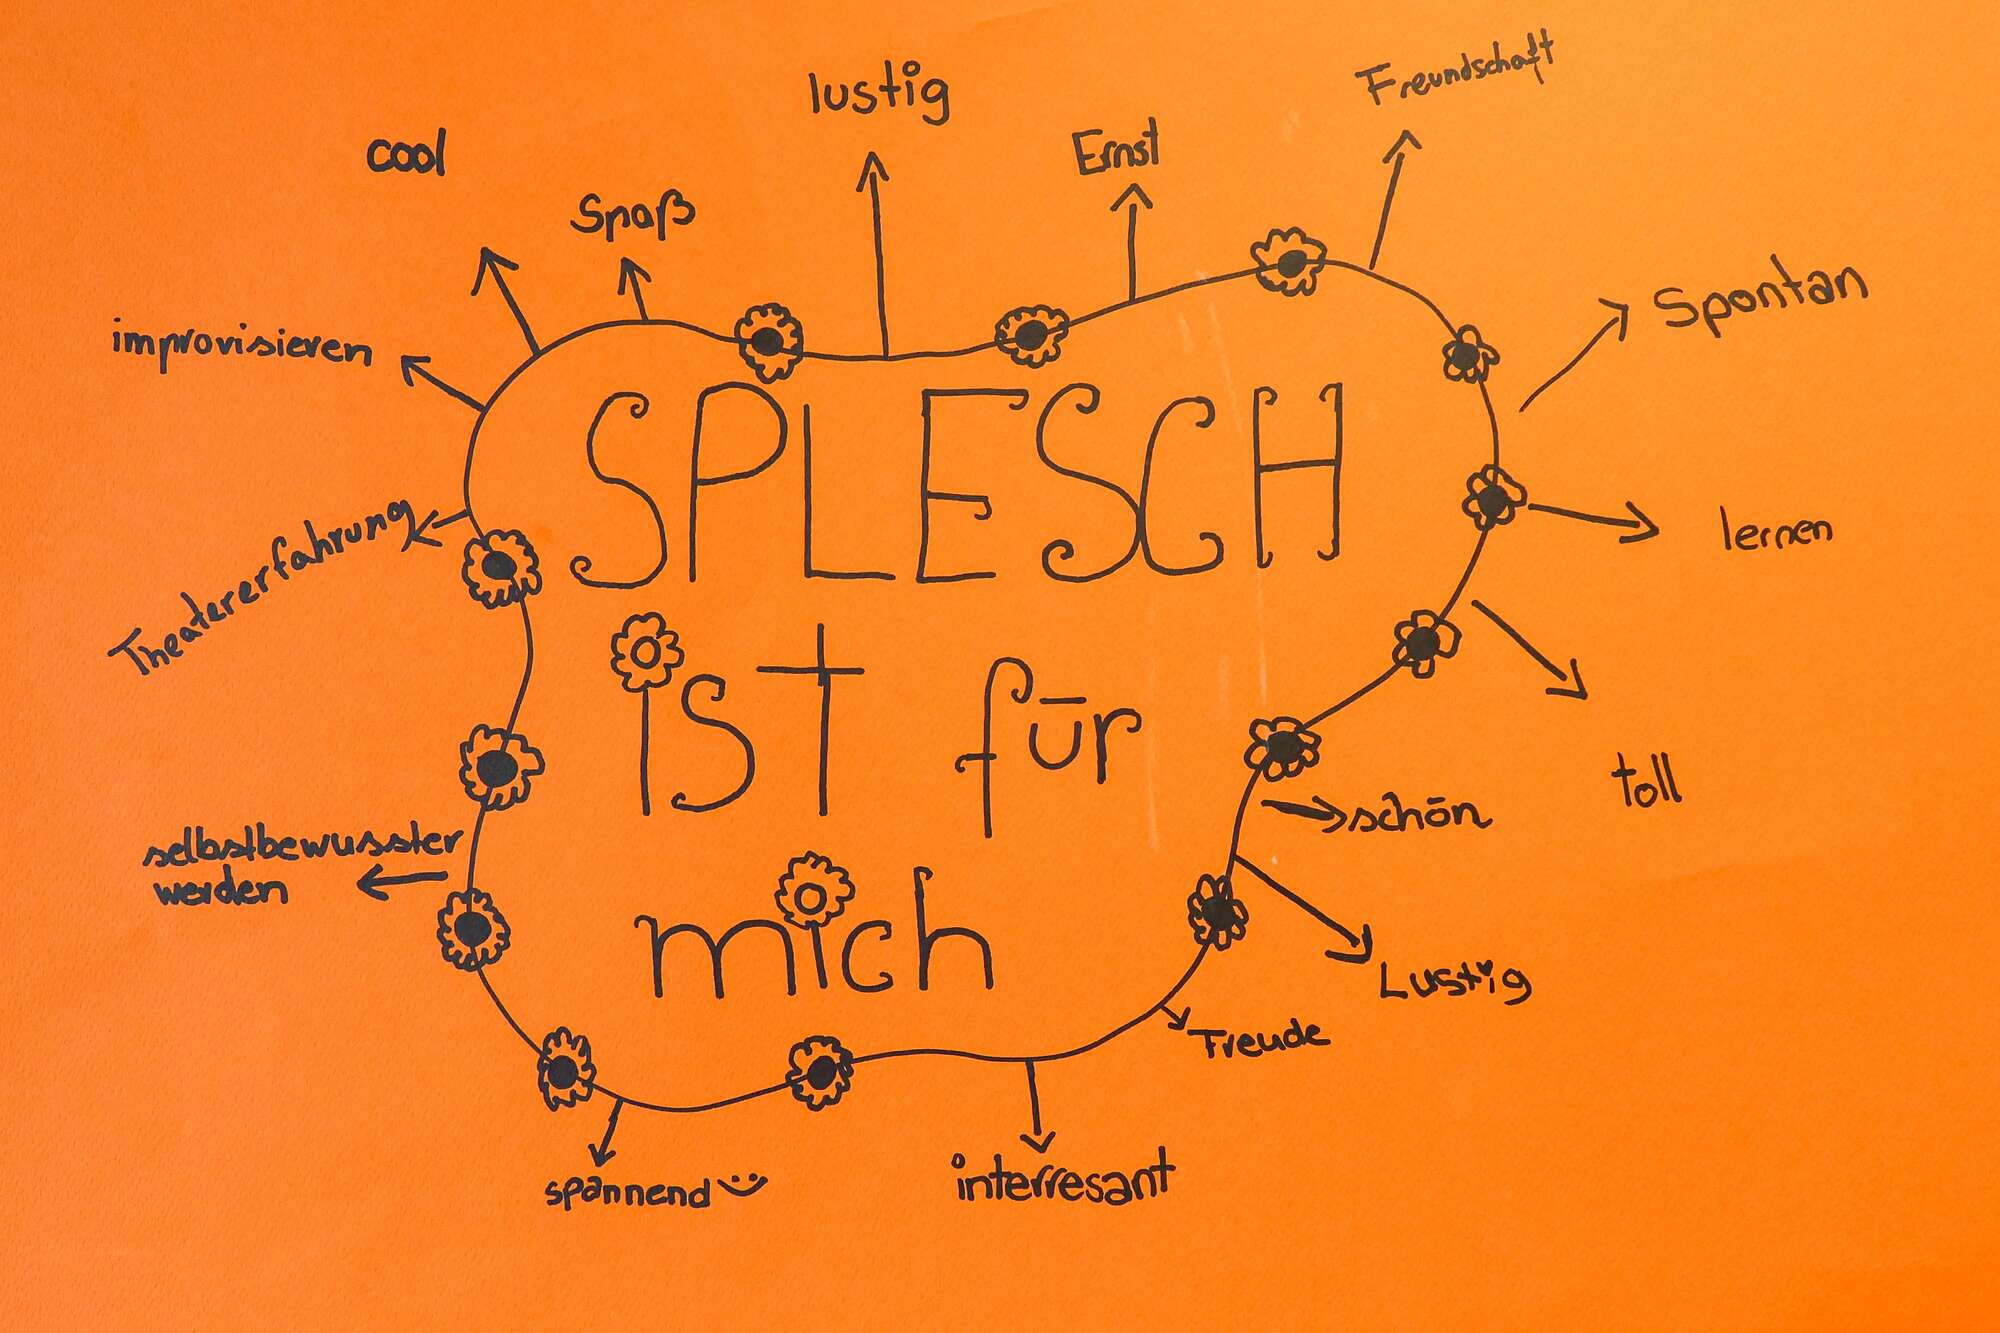 lustig
Freundschaft
cool
Ernst
Spaß
Spontan
improvisieren
SPLESCH
Theatererfahrung
lernen
ist für
toll
schön
selbstbewusster
werden
mich
Lustig
Freude
spannend
interresant